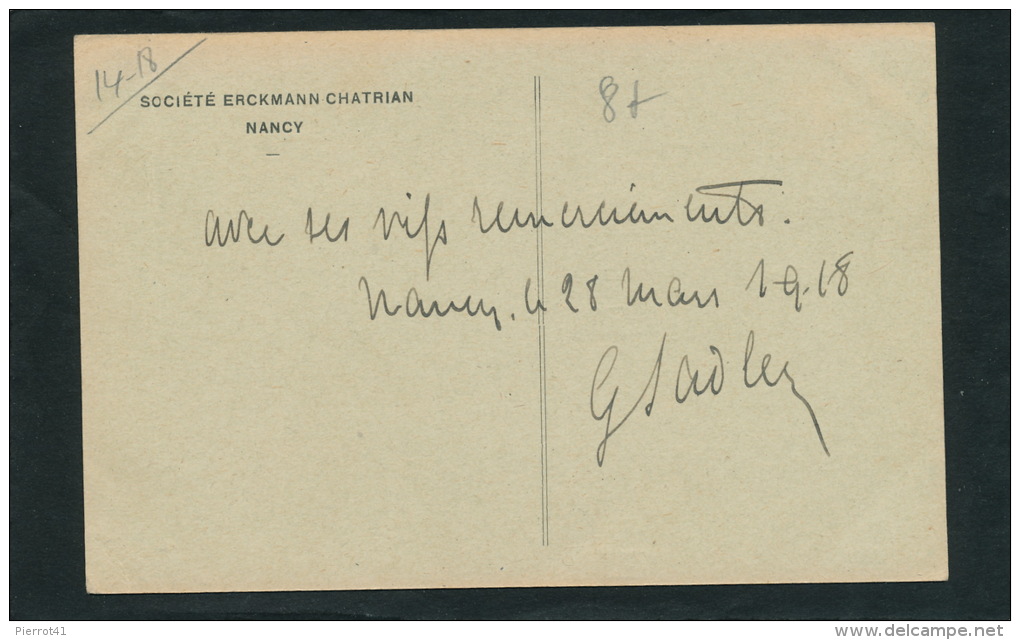 14-18
SOCIÉTÉ ERCKMANN CHATRIAN
NANCY
8+
avec ses vifs remerciements.
Nancy, le 28 Mars 1918
GSadler
Pierrot41
www.delcampe.net